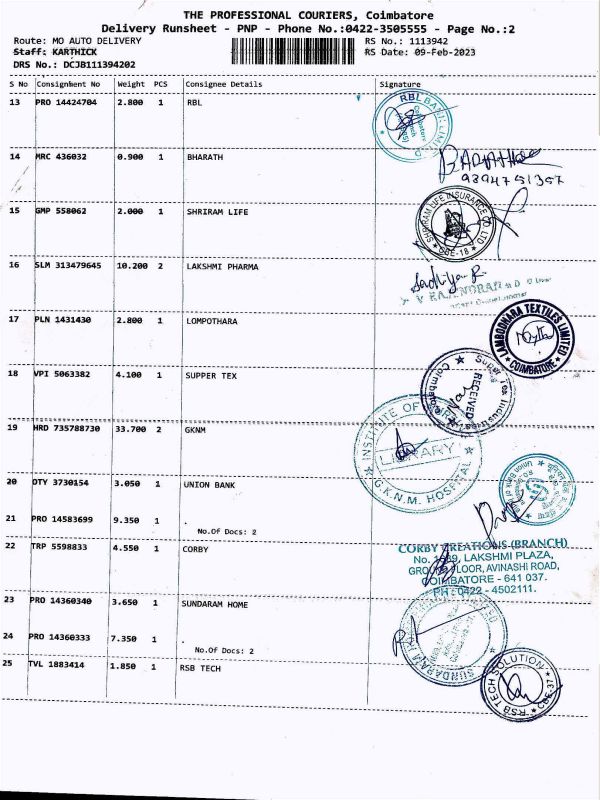 THE PROFESSIONAL COURIERS, Coimbatore
Delivery Runsheet - PNP - Phone No.:0422-3505555 - Page No.:2
Route: MO AUTO DELIVERY RS No.: 1113942
Staff: KARTHICK RS Date: 09-Feb-2023
DRS No.: DCJB111394202
S No Consignment No Weight PCS Consignee Details Signature
13 PRO 14424704 2.800 1 RBL
RBL BANK LIMITED
14 MRC 436032 0.900 1 BHARATH
15 GMP 558062 2.000 1 SHRIRAM LIFE
SHRIRAM LIFE INSURANCE CO LTD
16 SLM 313479645 10.200 2 LAKSHMI PHARMA
17 PLN 1431430 2.800 1 LOMPOTHARA
LAMBODHARA TEXTILES LIMITED
COIMBATORE
18 VPI 5063382 4.100 1 SUPPER TEX
RECEIVED
19 HRD 735788730 33.700 2 GKNM
INSTITUTE OF
LIBRARY
G.K.N.M. HOSPITAL
20 OTY 3730154 3.050 1 UNION BANK
21 PRO 14583699 9.350 1 .
No.Of Docs: 2
22 TRP 5598833 4.550 1 CORBY
CORBY CREATIONS (BRANCH)
LAKSHMI PLAZA,
GROUND FLOOR, AVINASHI ROAD,
COIMBATORE - 641 037.
PH : 0422 - 4502111.
23 PRO 14360340 3.650 1 SUNDARAM HOME
24 PRO 14360333 7.350 1 .
No.Of Docs: 2
25 TVL 1883414 1.850 1 RSB TECH
RSB TECH SOLUTION